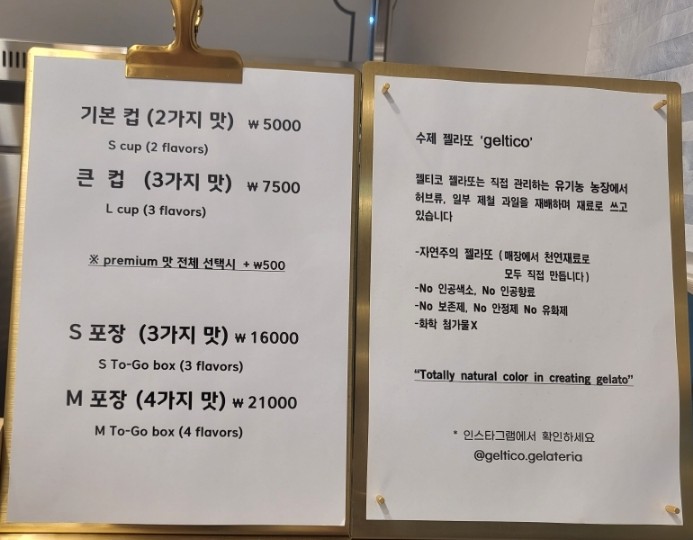 기본 컵 (2가지 맛) ₩ 5000
S cup (2 flavors)
큰 컵 (3가지 맛) ₩ 7500
L cup (3 flavors)
※ premium 맛 전체 선택시 + ₩500
S 포장 (3가지 맛) ₩ 16000
S To-Go box (3 flavors)
M 포장 (4가지 맛) ₩ 21000
M To-Go box (4 flavors)
수제 젤라또 'geltico'
젤티코 젤라또는 직접 관리하는 유기농 농장에서
허브류, 일부 제철 과일을 재배하며 재료로 쓰고
있습니다
-자연주의 젤라또 ( 매장에서 천연재료로
모두 직접 만듭니다 )
-No 인공색소, No 인공향료
-No 보존제, No 안정제 No 유화제
-화학 첨가물X
“Totally natural color in creating gelato”
* 인스타그램에서 확인하세요
@geltico.gelateria